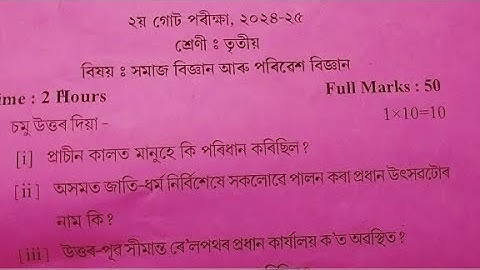 ২য় গোট পৰীক্ষা, ২০২৪-২৫
শ্ৰেণী ঃ তৃতীয়
বিষয় ঃ সমাজ বিজ্ঞান আৰু পৰিৱেশ বিজ্ঞান
ime : 2 Hours Full Marks : 50
চমু উত্তৰ দিয়া - 1×10=10
[i] প্ৰাচীন কালত মানুহে কি পৰিধান কৰিছিল?
[ii] অসমত জাতি-ধৰ্ম নিৰ্বিশেষে সকলোৱে পালন কৰা প্ৰধান উৎসৱটোৰ
নাম কি?
[iii] উত্তৰ-পূৱ সীমান্ত ৰে'লপথৰ প্ৰধান কাৰ্যালয় ক'ত অৱস্থিত?